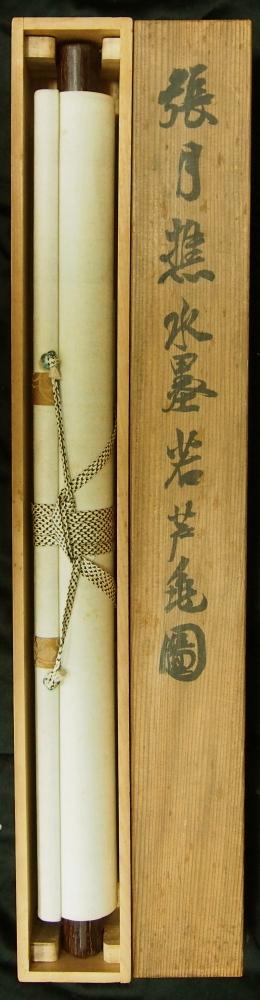 張月樵水墨若芦亀圖